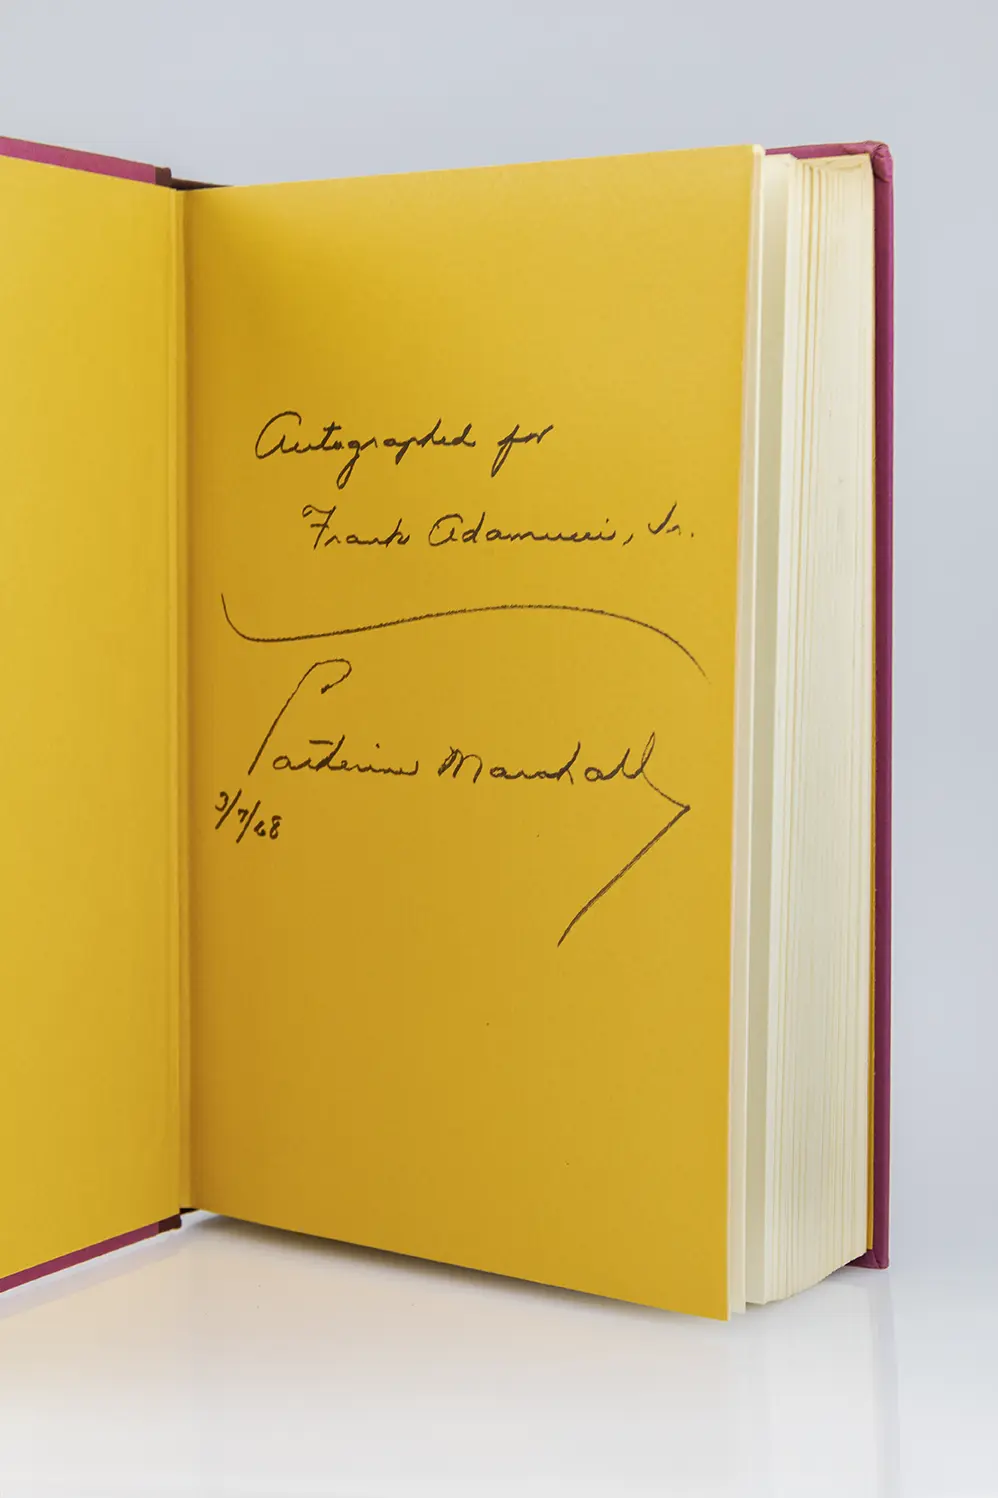 Autographed for
Frank Adamucci, Jr.
Catherine Marshall
3/7/68